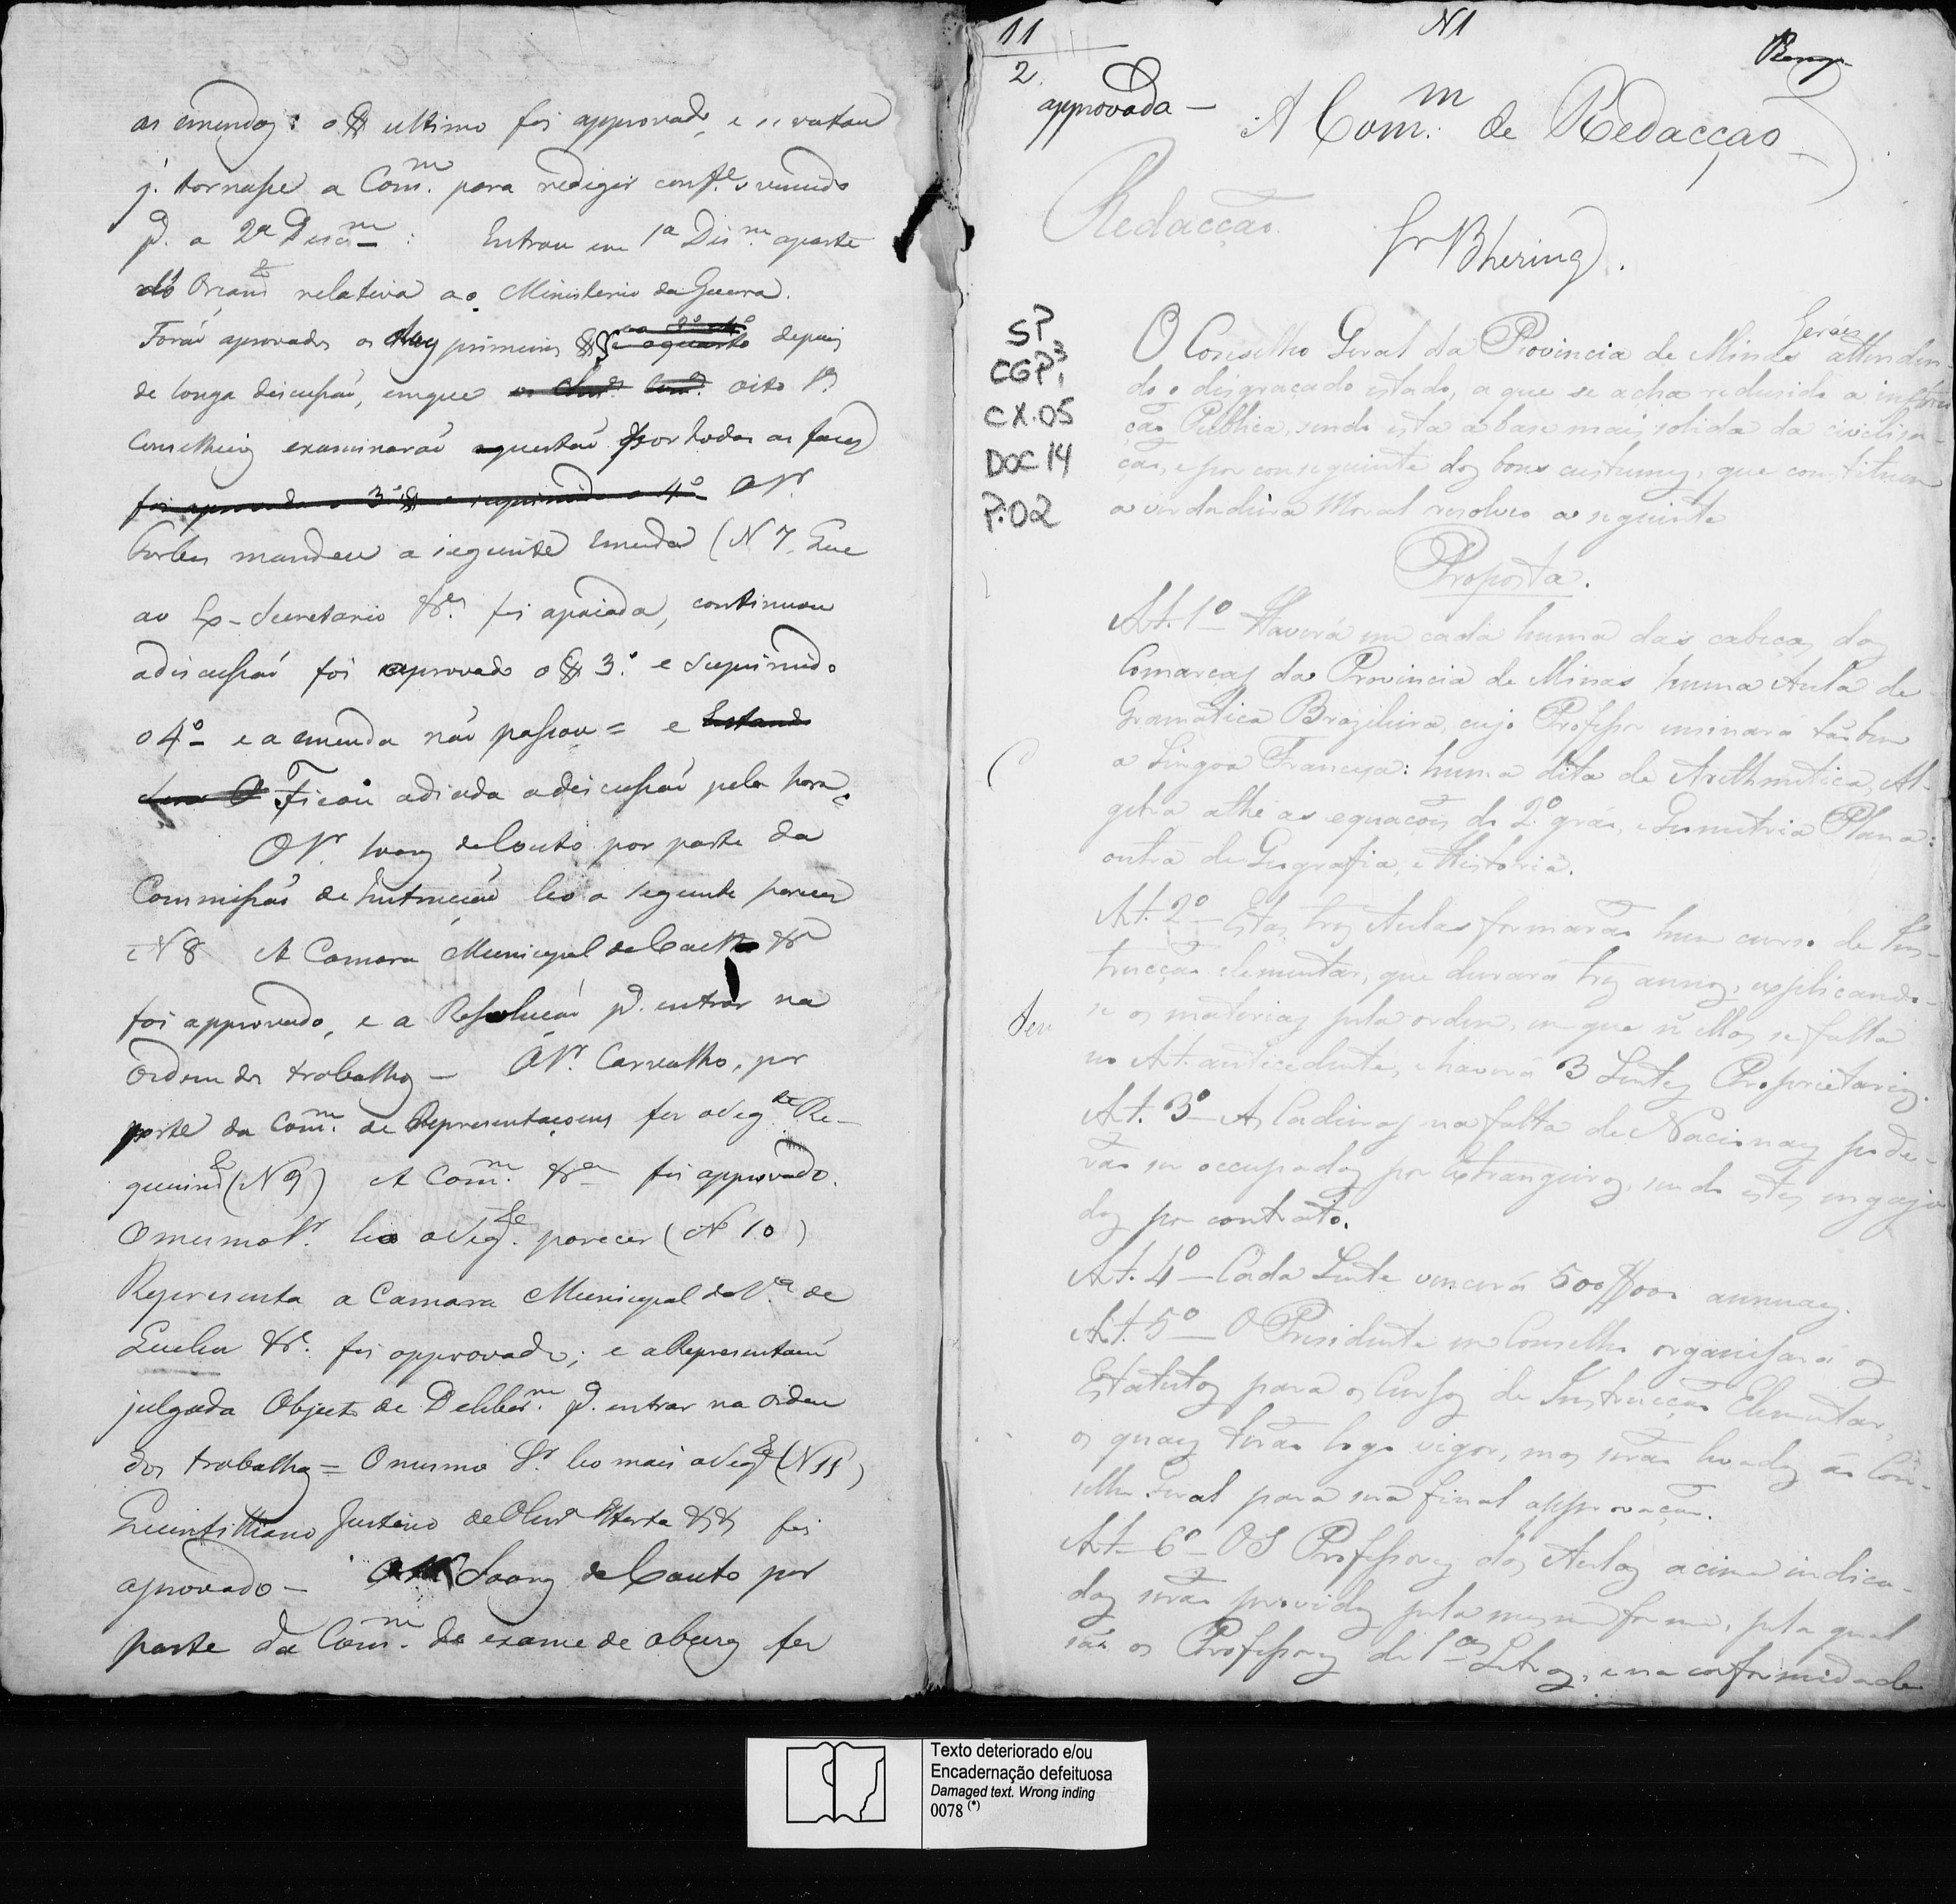 as emendas: o § ultimo foi approvado, e se votou
q. tornasse a Com.m para redigir conf.e o vencido
p.a a 2ª Disc.m : Entrou em 1ª Dis.m aparte
do Orcam.to relativa ao Ministerio da Guerra.
Foraõ aprovados os dous primeiros §§ e o quarto ao 3º e 4º depois
de longa discussaõ, emque oito Sr.es
Conselheiros examinaraõ aquestaõ por todas as faces
foi aprovado o 3º § e suprimido o 4º O Sr.
Forbes mandou a seguinte Emenda (N 7. Que
ao Ex-Secretario &.a foi apoiada, continuou
adiscussaõ foi aprovado o § 3.º e Suprimido
o 4º e a emenda naõ passou = e Estando
Ficou adiada adiscussaõ pela hora =
O Sr. Soares do Couto por parte da
Commissaõ de Instrucçaõ leo o seguinte parecer
N 8 A Camara Municipal de Caethe &.a
foi approvado, e a Resoluçaõ p.a entrar na
Ordem dos trabalhos — O Sr. Carvalho, por
parte da Com.m de Representacoens fez o Seg.te Re-
querim.to (N 9) A Com.m &.a foi approvado.
O mesmo Sr. leo o Seg.te parecer (N 10)
Representa a Camara Municipal da V.a de
Queluz &.a foi approvado; e a Representaçaõ
julgada Objecto de Deliber.m p.a entrar na Ordem
dos trabalhos = O mesmo Sr. leo mais o Seg.te (N 11)
Quintilliano Justino de Oliv.a Horta &.&. foi
aprovado — O Sr. Soares do Couto por
parte da Com.m de exame de obras fez
11
2
N 1
approvada —
A Com.m de Redacção
Redacção
Sr Bhering.
SP
CGP³1
CX.05
DOC 14
P.02
O Conselho Geral da Provincia de Minas Geraes attenden-
do o disgraçado estado, a que se acha redusida a instruc
ção Publica, sendo esta a base mais solida da civilisa-
ção, e por conseguinte dos bons custumes, que constituem
a verdadeira Moral resolveo a seguinte
Proposta.
Art. 1º Haverá em cada huma das cabeças das
Comarcas da Provincia de Minas huma Aula de
Gramatica Brazileira, cujo Professor ensinará tãobem
a Lingoa Franceza: huma dita de Arithmetica, Al-
gebra athé as equações do 2º gráo, e Geometria Plana:
outra de Geografia, e Historia.
Art. 2º Estas tres Aulas formarão hum curso de Ins-
trucção elementar, que durará tres annos, explicando-
se as materias pela ordem, em que n'ellas se falla
no Art. antecedente, e haverá 3 Lentes Proprietarios.
Art. 3º As Cadeiras na falta de Nacionaes pode-
rão ser occupadas por Extrangeiros, sendo estes engaja
dos por contrato.
Art. 4º — Cada Lente vencerá 500$000 annuaes.
Art. 5º — O Presidente em Conselho organisará os
Estatutos para os Cursos de Instrucção Elementar,
os quaes terão logo vigor, mas serão levados ao Con-
selho Geral para sua final approvação.
Art. 6º — Os Professores das Aulas acima indica-
das serão providos pela mesma forma, pela qual
são os Professores de 1as Letras, e na conformidade
Texto deteriorado e/ou
Encadernação defeituosa
Damaged text. Wrong inding
0078 (*)